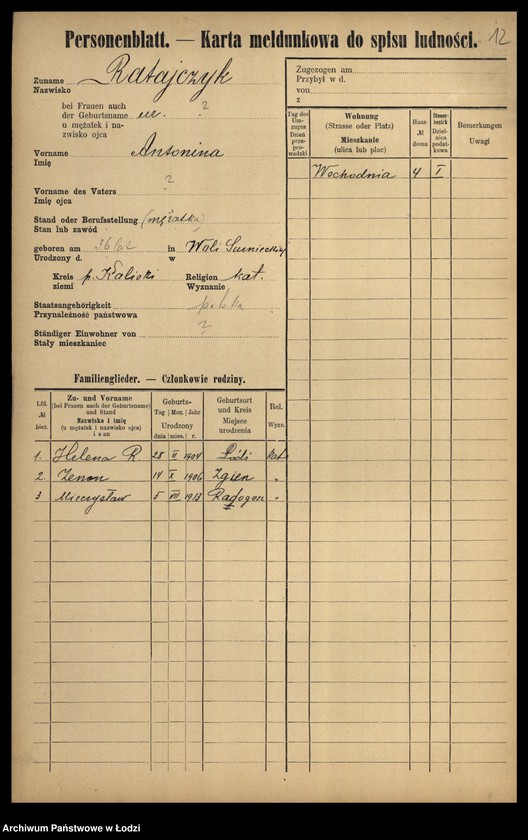 12
Personenblatt. — Karta meldunkowa do spisu ludności.
Zuname Ratajczyk
Nazwisko
bei Frauen auch
der Geburtsname ur. ?
u mężatek i na-
zwisko ojca
Vorname Antonina
Imię
Vorname des Vaters ?
Imię ojca
Stand oder Berufsstellung (mężatka)
Stan lub zawód
geboren am 36 lat in Woli
Urodzony d. w
Kreis p. Kaliski Religion kat.
ziemi Wyznanie
Staatsangehörigkeit polska
Przynależność państwowa
Ständiger Einwohner von ?
Stały mieszkaniec
Zugezogen am
Przybył w d.
von
z
Tag des Um-zuges Dzień prze-pro-wadzki
Wohnung (Strasse oder Platz) Mieszkanie (ulica lub plac)
Haus- № domu
Steuer-bezirk Dziel-nica podat-kowa
Bemerkungen Uwagi
Wschodnia 4 I
Familienglieder. — Członkowie rodziny.
Lfd. № bież.
Zu- und Vorname (bei Frauen auch der Geburtsname) und Stand Nazwisko i imię (u mężatek i nazwisko ojca) i stan
Geburts- Tag Mon. Jahr Urodzony dnia mies. r.
Geburtsort und Kreis Miejsce urodzenia
Rel. Wyzn.
1. Helena R. 28 II 1904 Łódź kat.
2. Zenon 14 X 1906 Zgierz "
3 Mieczysław 5 VII 1913 Radogon "
Archiwum Państwowe w Łodzi